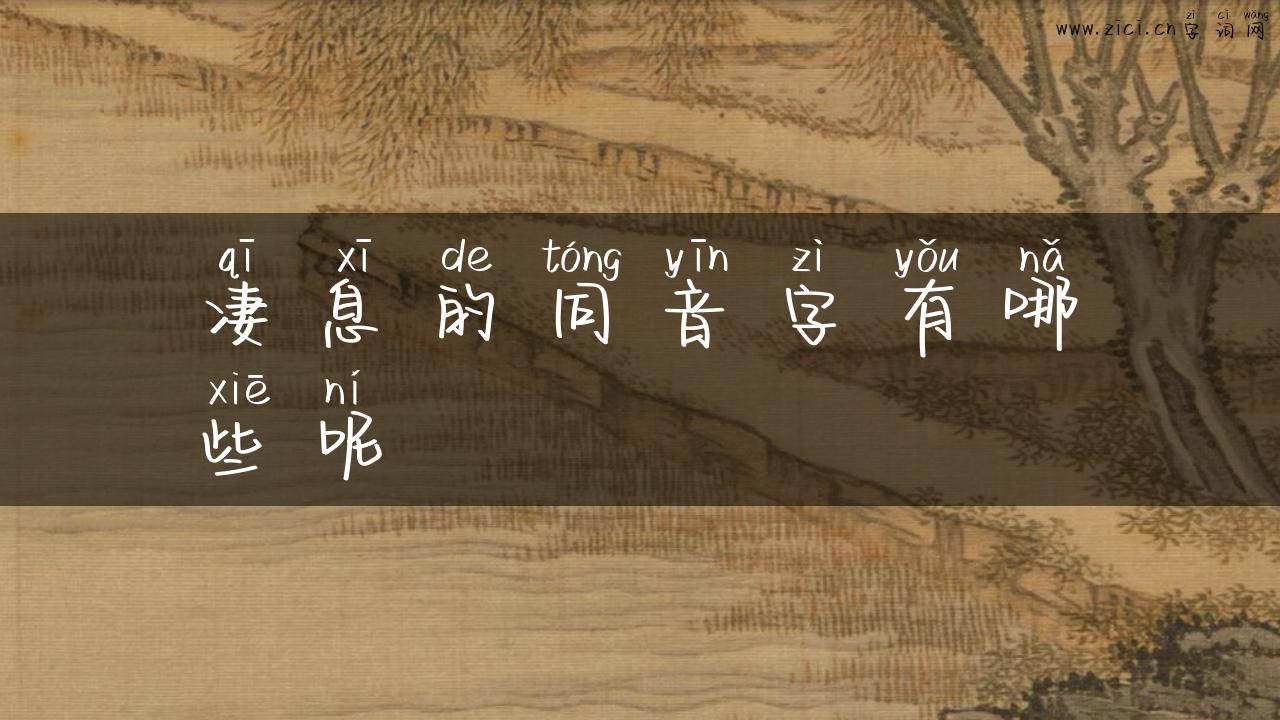 zì cí wǎng
www.zici.cn字词网
qī xī de tóng yīn zì yǒu nǎ
凄息的同音字有哪
xiē ní
些呢